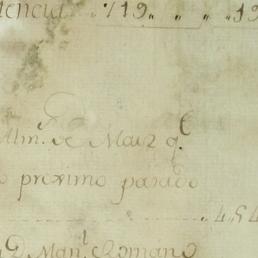 tencia 719 „ „ „ 19
Alm.ᵉ de Maiz q.ᵉ
o proximo pasado
454
D. Man.ˡ Romano